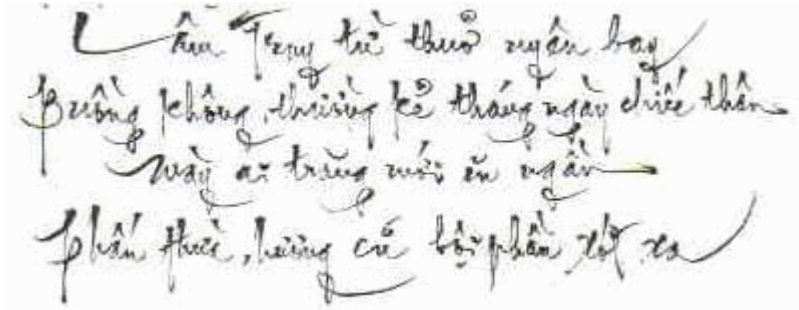 Lâm Truy từ thuở uyên bay
Buồng không, thương kẻ tháng ngày chiếc thân
Mày ai trăng mới in ngần
Phấn thừa, hương cũ bội phần xót xa